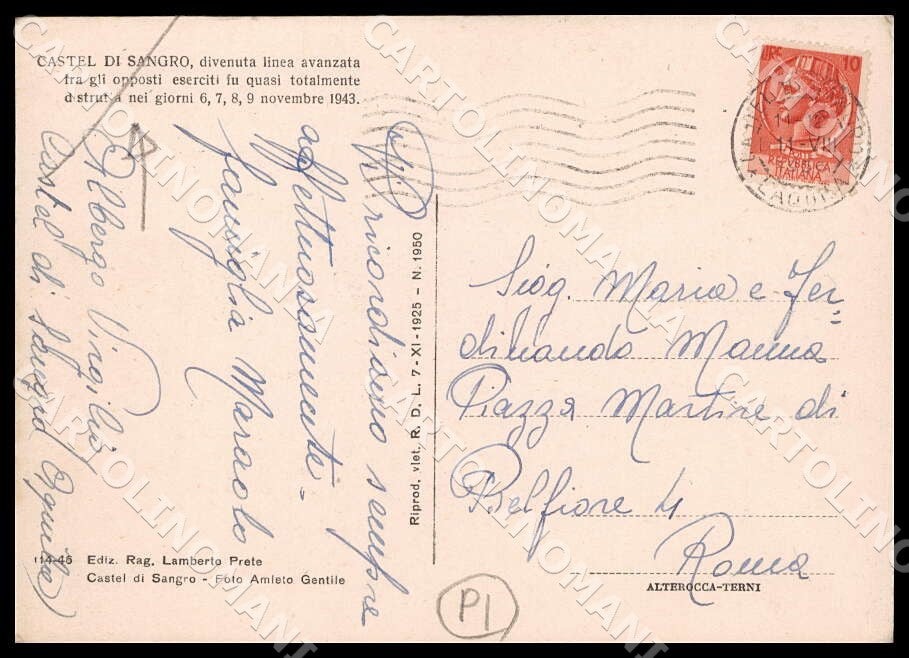 CASTEL DI SANGRO, divenuta linea avanzata
fra gli opposti eserciti fu quasi totalmente
distrutta nei giorni 6, 7, 8, 9 novembre 1943.
LIRE 10
REPUBBLICA
ITALIANA
L'AQUILA
Vi ricordiamo sempre
affettuosamente -
famiglia Maraolo
Albergo Virgilio
Castel di Sangro
Riprod. viet. R. D. L. 7 - XI - 1925 - N. 1950
Sigg. Maria e Fer
dinando Manna
Piazza Martire di
Belfiore 4
Roma
114-46 Ediz. Rag. Lamberto Prete
Castel di Sangro - Foto Amleto Gentile
ALTEROCCA-TERNI
P1
CARTOLINOMANIA